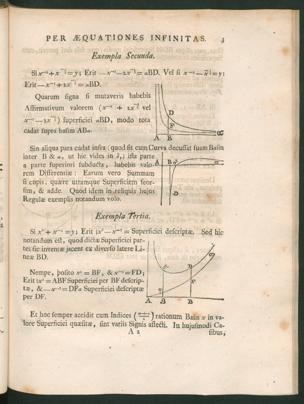 PER ÆQUATIONES INFINITAS. 3
Exempla Secunda.
Si x⁻²+x^{-3/2}=y; Erit —x⁻¹—2x^{-1/2}=αBD. Vel si x⁻²—x^{-3/2}=y;
Erit—x⁻¹+2x^{-1/2}=αBD.
Quarum signa si mutaveris habebis
Affirmativum valorem (x⁻¹ + 2x^{-1/2} vel
x⁻¹—2x^{-1/2}) superficiei αBD, modo tota
cadat supra basim ABα.
Sin aliqua pars cadat infra (quod fit cum Curva decussat suam Basin
inter B & α, ut hic vides in δ,) ista parte
a parte superiori subducta, habebis valo-
rem Differentiæ: Earum vero Summam
si cupis, quære utramque Superficiem seor-
sim, & adde. Quod idem in reliquis hujus
Regulæ exemplis notandum volo.
Exempla Tertia.
Si x²+x⁻²=y; Erit ⅓x³—x⁻¹= Superficiei descriptæ. Sed hic
notandum est, quod dictæ Superficiei par-
tes sic inventæ jacent ex diverso latere Li-
neæ BD.
Nempe, posito x²=BF, & x⁻²=FD;
Erit ⅓x³=ABF Superficiei per BF descrip-
tæ, &—x⁻¹=DFα Superficiei descriptæ
per DF.
Et hoc semper accidit cum Indices rationum Basis x in va-
lore Superficiei quæsitæ, sint variis Signis affecti. In hujusmodi Ca-
A 2 sibus,